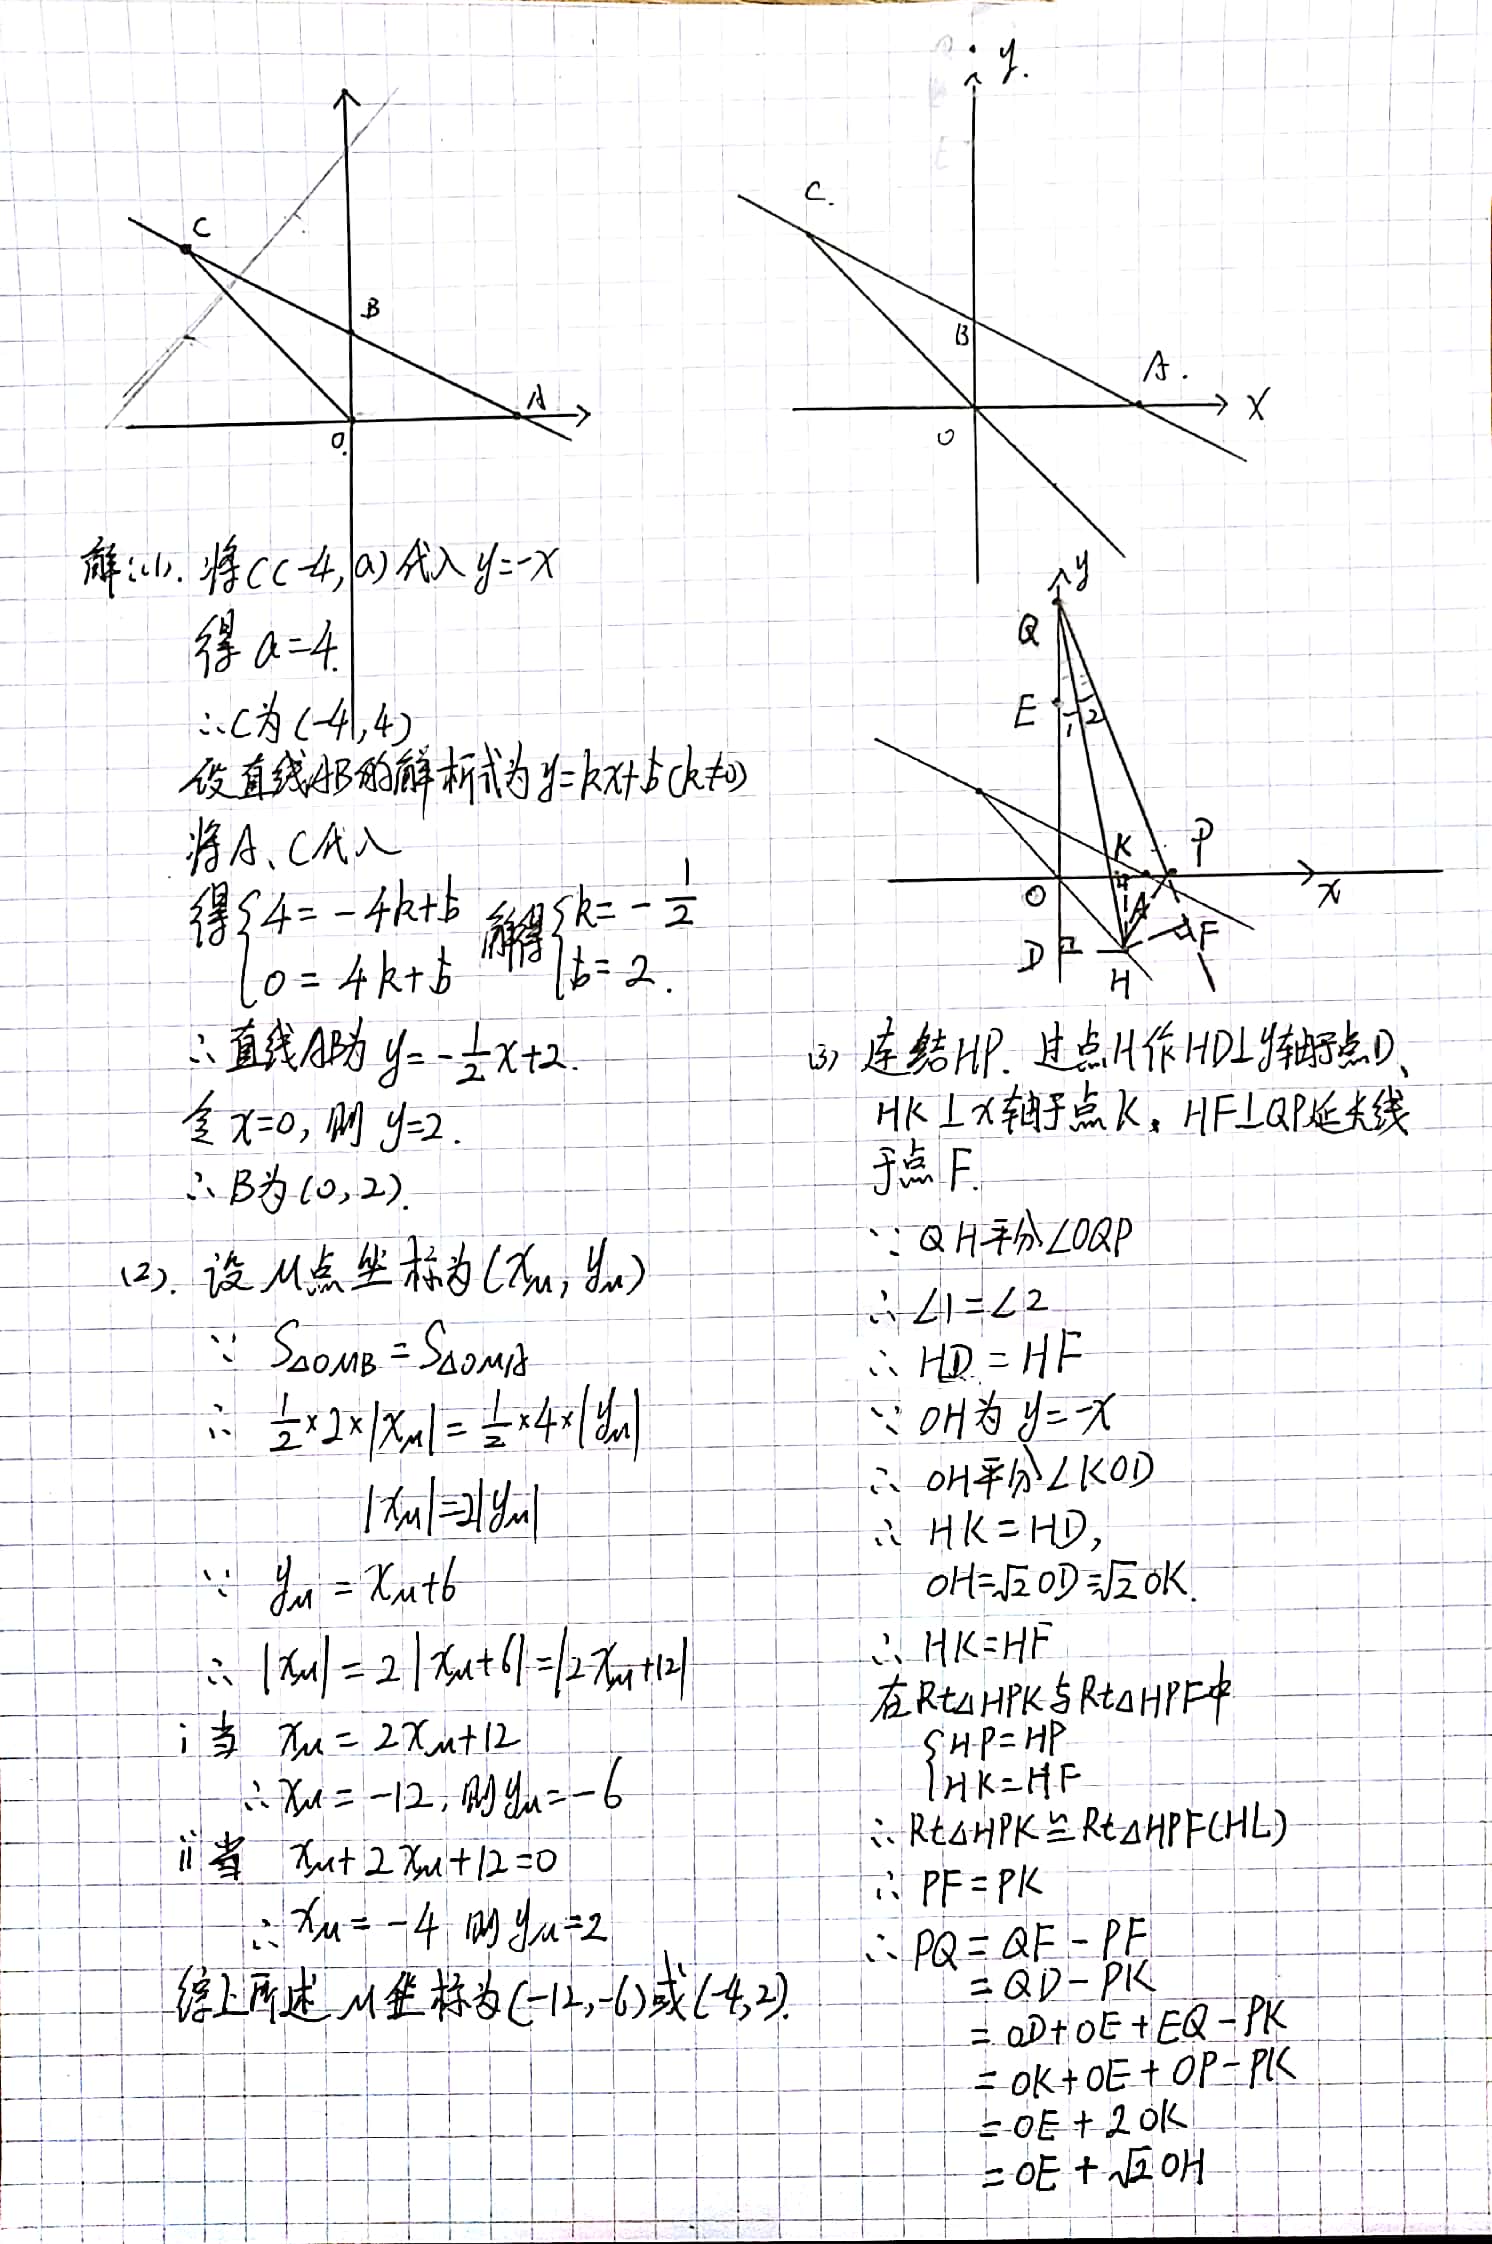 C
B
A
O
y.
C.
B
A.
O
x
解:(1). 将C(-4,a)代入y=-x
得 a=4.
∴C为(-4,4)
设直线AB的解析式为y=kx+b(k≠0)
将A、C代入
得{4=-4k+b 解得{k=-1/2
0=4k+b b=2.
∴直线AB为 y=-1/2x+2.
令x=0,则 y=2.
∴B为(0,2).
(2). 设M点坐标为(x_M, y_M)
∵ S△OMB=S△OMA
∴ 1/2×2×|x_M|=1/2×4×|y_M|
|x_M|=2|y_M|
∵ y_M=x_M+6
∴ |x_M|=2|x_M+6|=|2x_M+12|
i 当 x_M=2x_M+12
∴x_M=-12,则y_M=-6
ii 当 x_M+2x_M+12=0
∴x_M=-4 则y_M=2
综上所述 M坐标为(-12,-6)或(-4,2).
y
Q
E
1 2
K
P
O
x
A
D
F
H
(3) 连结HP. 过点H作HD⊥y轴于点D、
HK⊥x轴于点K, HF⊥QP延长线
于点F.
∵ QH平分∠OQP
∴ ∠1=∠2
∴ HD=HF
∵ OH为 y=-x
∴ OH平分∠KOD
∴ HK=HD,
OH=√2OD=√2OK.
∴ HK=HF
在Rt△HPK与Rt△HPF中
{HP=HP
HK=HF
∴Rt△HPK≌Rt△HPF(HL)
∴ PF=PK
∴ PQ=QF-PF
=QD-PK
=OD+OE+EQ-PK
=OK+OE+OP-PK
=OE+2OK
=OE+√2OH